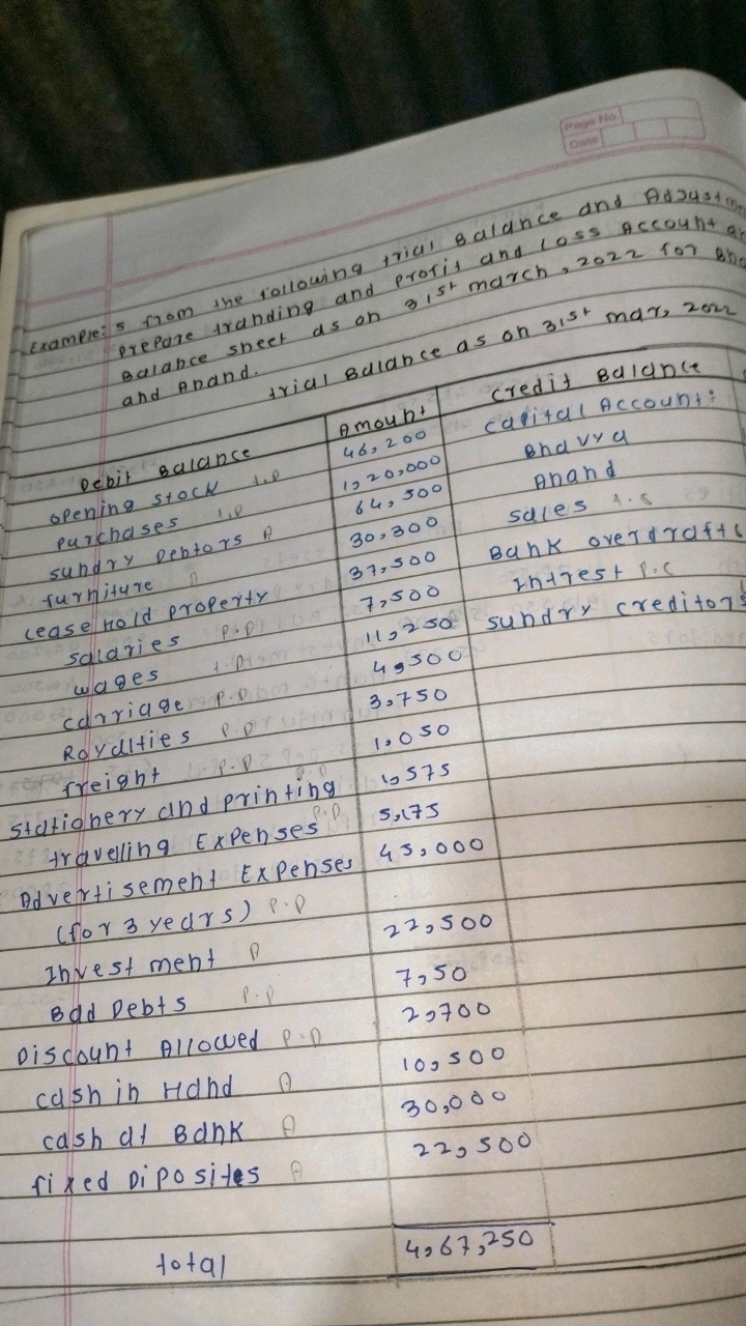 Page No.
Date
Example: 5 from the following trial Balance and Adjustme
prepare tranding and profit and Loss Account an
Balance sheet as on 31st march, 2022 for Bha
and Anand.
trial Balance as on 31st mar, 2022
Debit Balance Amount Credit Balance
opening stock T.D 46,200 capital Account:
purchases T.D 1,20,000 Bhavya
sundry Debtors A 64,500 Anand
furniture A 30,300 sales T.C
Lease Hold property 37,500 Bank overdrafts
salaries P.D 7,500 Intrest P.C
wages T.D 11,250 sundry creditors
carriage P.D 4,500
Royalties P.D 3,750
freight P.D 1,050
stationery and printing P.D 1,575
travelling Expenses P.D 5,175
Advertisement Expenses 45,000
(for 3 years) P.D
Invest ment A 22,500
Bad Debts P.D 7,50
Discount Allowed P.D 2,700
cash in Hand A 10,500
cash at Bank A 30,000
fixed Diposites A 22,500
total 4,67,250